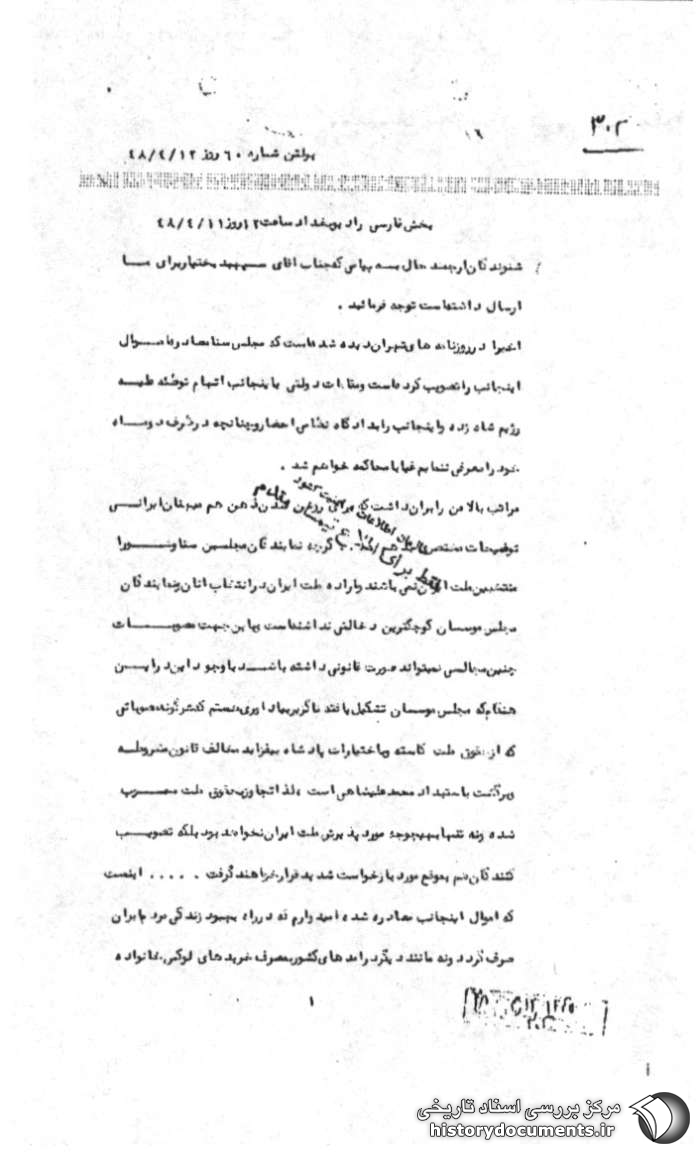 ۳۰۲
۱۶
بولتن شماره ۶۰ روز ۴۸/۴/۱۲
بخش فارسی رادیو بغداد ساعت ۱۲ روز ۴۸/۴/۱۱
شنوندگان ارجمند حال به پیامی که جناب آقای سپهبد بختیار برای ما
ارسال داشته است توجه فرمائید .
اخیرا در روزنامه های تهران دیده شده است که مجلس سنا مصادره اموال
اینجانب را تصویب کرده است ومقامات دولتی باینجانب اتهام توطئه علیه
رژیم شاه زده واینجانب را بدادگاه نظامی احضار وچنانچه در ظرف دو ماه
خود را معرفی ننمایم غیابا محاکمه خواهم شد .
مراتب بالا من را بران داشت که برای روشن شدن ذهن هم میهنان ایرانی
توضیحات مختصری بدهم گرچه نمایندگان مجلسین سنا وشورا
منتخبین ملت ایران نمی باشند واراده ملت ایران در انتخاب انان ونمایندگان
مجلس موسسان کوچکترین دخالتی نداشته است وباین جهت مصوبات
چنین مجالسی نمیتواند صورت قانونی داشته باشد با وجود این در این
هنگام که مجلس موسسان تشکیل یافته ناگزیر بیاد اوری هستم که هرگونه مصوباتی
که از حقوق ملت کاسته وباختیارات پادشاه بیفزاید مخالف قانون مشروطه
وبرگشت باستبداد محمد علیشاهی است ولذا تجاوز بحقوق ملت محسوب
شده ونه تنها بهیچوجه مورد پذیرش ملت ایران نخواهد بود بلکه تصویب
کنندگان هم بموقع مورد بازخواست شدید قرار خواهند گرفت . . . . . اینست
که اموال اینجانب مصادره شده امیدوارم که در راه بهبود زندگی مردم ایران
صرف گردد ونه مانند دیگر درامد های کشور بمصرف خرید های لوکس خانواده
فقط برای اطلاعات
۱
۲۰۲
مرکز بررسی اسناد تاریخی
historydocuments.ir